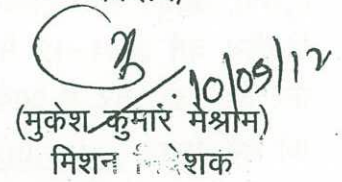 10/09/12
(मुकेश कुमार मेश्राम)
मिशन निदेशक